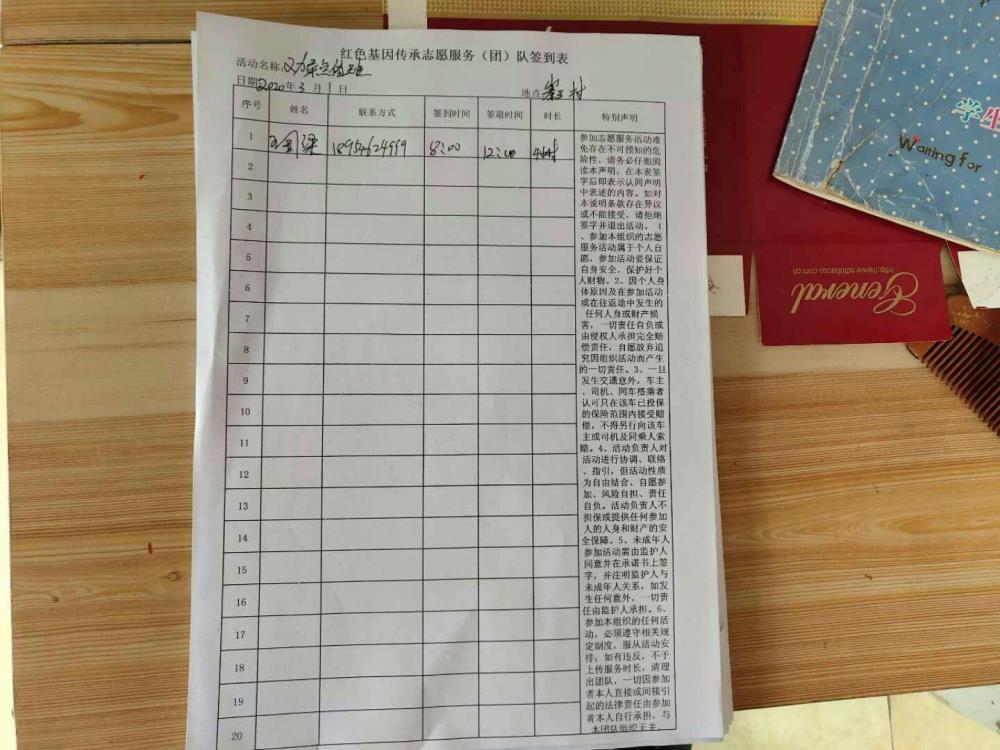 红色基因传承志愿服务（团）队签到表
活动名称:
日期2020年3月1日
地点 村
序号 姓名 联系方式 签到时间 签退时间 时长 特别声明
1 18954624999 8:00 12:00
2
3
4
5
6
7
8
9
10
11
12
13
14
15
16
17
18
19
20
参加志愿服务活动难
免存在不可预知的危
险性，请务必仔细阅
读本声明，在本表签
字后即表示认同声明
中表述的内容。如对
本说明条款存在异议
或不能接受，请拒绝
签字并退出活动。 1
、参加本组织的志愿
服务活动属于个人自
愿，参加活动要保证
自身安全，保护好个
人财物。2、因个人身
体原因及在参加活动
或在往返途中发生的
任何人身或财产损
害，一切责任自负或
由侵权人承担完全赔
偿责任，自愿放弃追
究因组织活动而产生
的一切责任。3、一旦
发生交通意外，车主
、司机、同车搭乘者
认可只在该车已投保
的保险范围内接受赔
偿，不得另行向该车
主或司机及同乘人索
赔。4、活动负责人对
活动进行协调、联络
、指引，但活动性质
为自由结合、自愿参
加、风险自担、责任
自负。活动负责人不
担保或提供任何参加
人的人身和财产的安
全保障。5、未成年人
参加活动需由监护人
同意并在承诺书上签
字，并注明监护人与
未成年人关系，如发
生任何意外，一切责
任由监护人承担。6、
参加本组织的任何活
动，必须遵守相关规
定制度，服从活动安
排；如有违反，不予
上传服务时长，清理
出团队，一切因参加
者本人直接或间接引
起的法律责任由参加
者本人自行承担，与
本团队组织无关。
学生
Waiting for
General
http://www.sdtobacco.com.cn